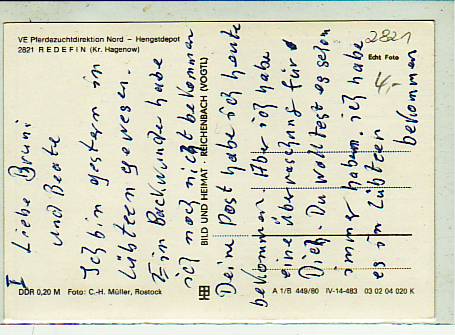 VE Pferdezuchtdirektion Nord – Hengstdepot
2821 REDEFIN (Kr. Hagenow)
2821
Echt Foto
4,-
I
Liebe Bruni
und Beate
Ich bin gestern in
Lübteen gewesen.
Ein Backwunder habe
ich noch nicht bekommen
BILD UND HEIMAT · REICHENBACH (VOGTL)
Deine Post habe ich heute
bekommen. Aber ich habe
eine Überraschung für
Dich. Du wolltest es schon
immer haben. ich habe
es in Lübteen
bekommen
DDR 0,20 M Foto: C.-H. Müller, Rostock
A 1/B 449/80 IV-14-483 03 02 04 020 K